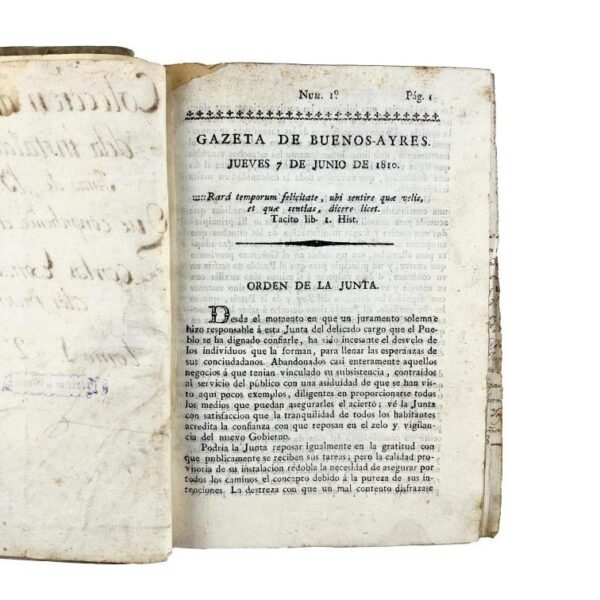 Num. 1º Pág. 1
GAZETA DE BUENOS-AYRES.
JUEVES 7 DE JUNIO DE 1810.
:::::Rará temporum felicitate, ubi sentire quæ velis,
et quæ sentias, dicere licet.
Tacito lib. 1. Hist.
ORDEN DE LA JUNTA.
Desde el momento en que un juramento solemne
hizo responsable á esta Junta del delicado cargo que el Pue-
blo se ha dignado confiarle, ha sido incesante el desvelo de
los individuos que la forman, para llenar las esperanzas de
sus conciudadanos. Abandonados casi enteramente aquellos
negocios á que tenian vinculado su subsistencia, contraidos
al servicio del público con una asiduidad de que se han vis-
to aqui pocos exemplos, diligentes en proporcionarse todos
los medios que puedan asegurarles el acierto; vé la Junta
con satisfaccion que la tranquilidad de todos los habitantes
acredita la confianza con que reposan en el zelo y vigilan-
cia del nuevo Gobierno.
Podria la Junta reposar igualmente en la gratitud con
que publicamente se reciben sus tareas; pero la calidad pro-
visoria de su instalacion rédobla la necesidad de asegurar por
todos los caminos el concepto debido á la pureza de sus in-
tenciones. La destreza con que un mal contento disfrazase